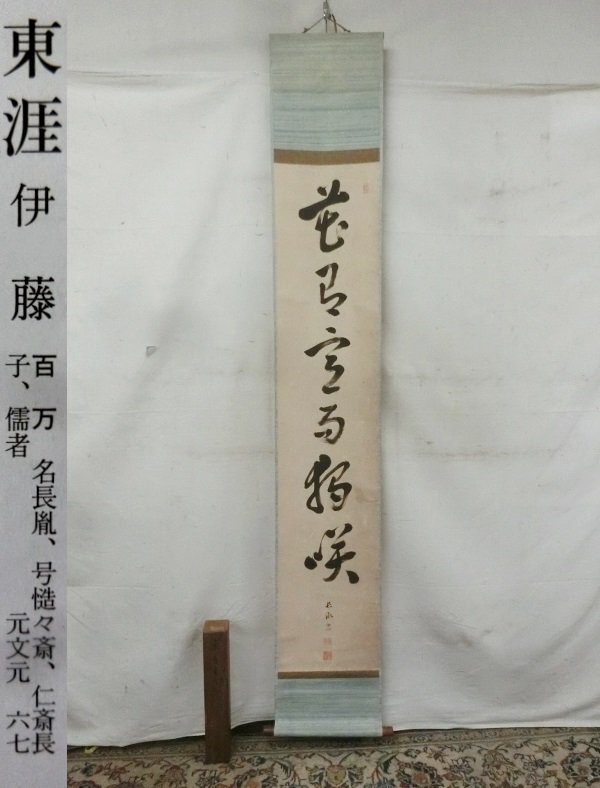 東涯 伊藤
百万 名長胤、号慥々斎、仁斎長
子、儒者 元文元 六七
花而獨咲